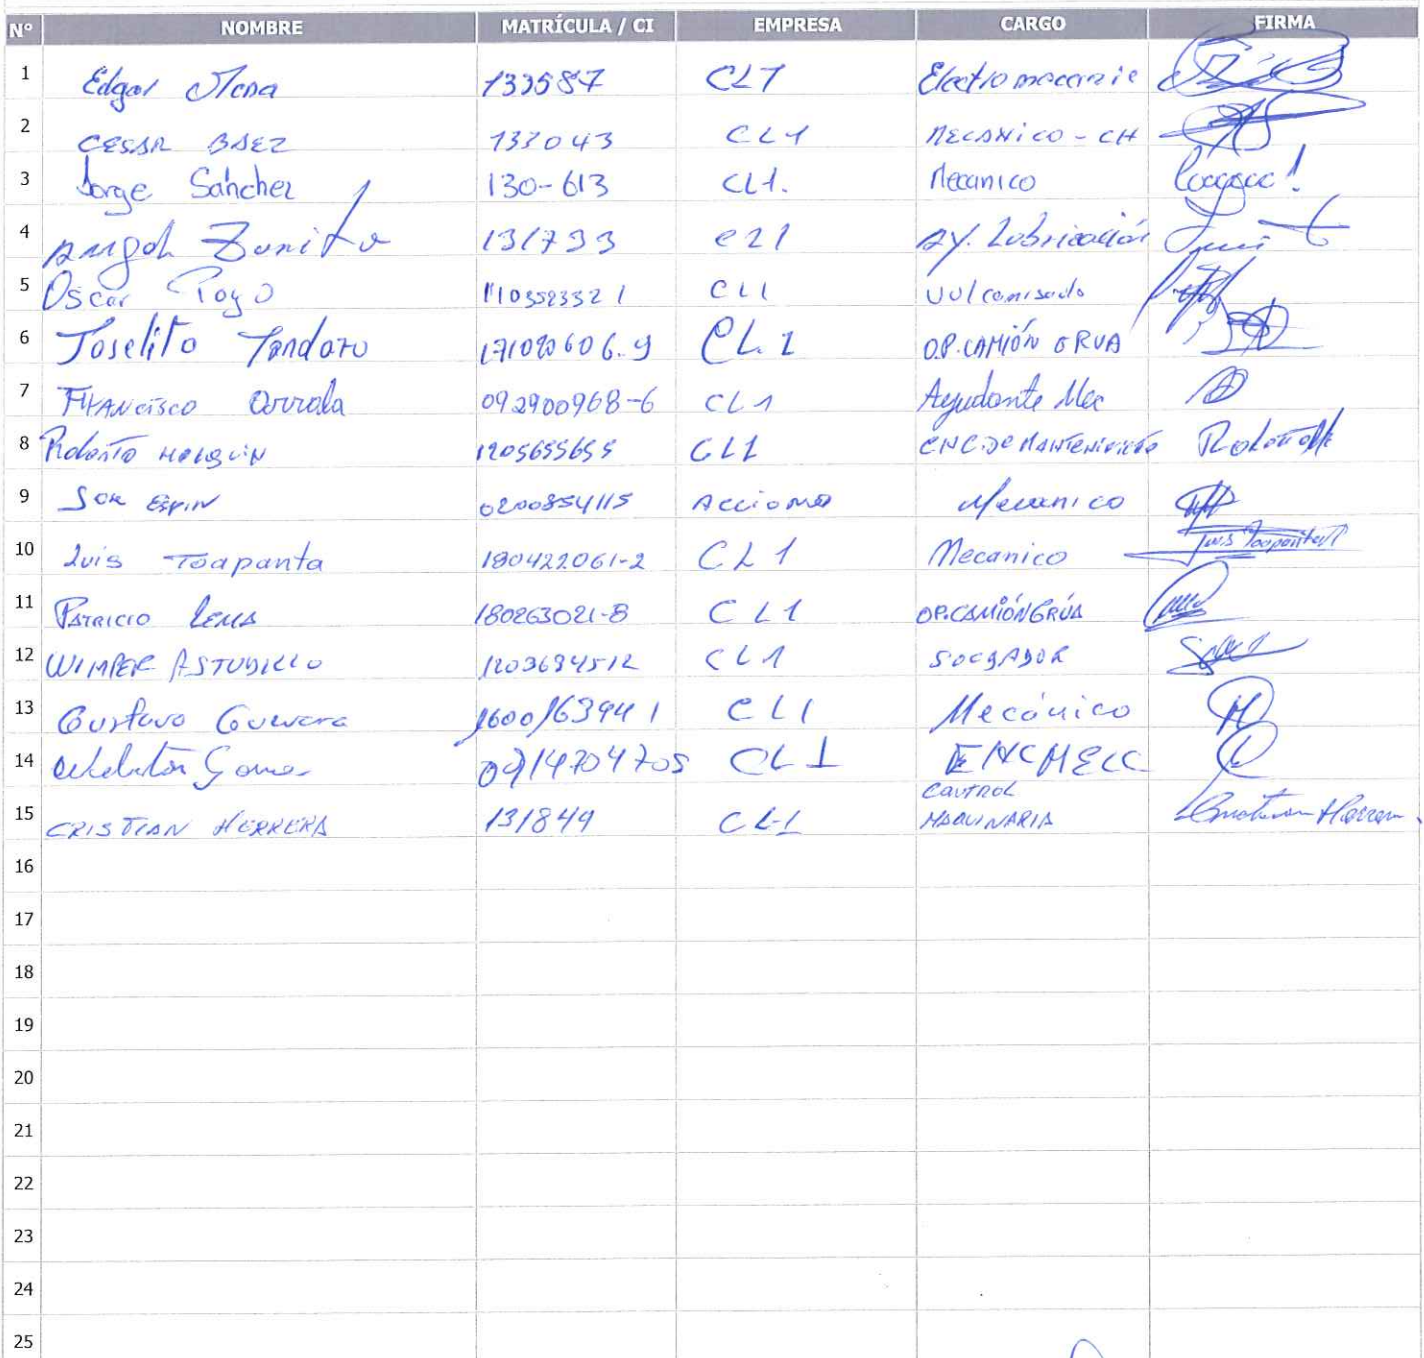 N° NOMBRE MATRÍCULA / CI EMPRESA CARGO FIRMA
1 Edgar Mena 133587 CL1 Electromecanic
2 CESAR BAEZ 133043 CL1 MECANICO - CH
3 Jorge Sánchez 130-613 CL1. Mecanico
4 Angel Zurita 131733 CL1 AY. Lubricación
5 Oscar Poyo CL1 Vulcanisado
6 Joselito CL.1 OP.CAMIÓN GRUA
7 Francisco Arrala 092900968-6 CL1 Ayudante Mec
8 Roberto HOLGUIN 1205655655 CL1 ENC.DE MANTENIMIENTO
9 ESPIN 0200854115 ACCIONA Mecanico
10 Luis Toapanta 180422061-2 CL1 Mecanico Luis Toapanta
11 PATRICIO LEMA 180263021-8 CL1 OP.CAMIÓN GRÚA
12 WIMPER ASTUDILLO 1203684512 CL1 SOLDADOR
13 Gustavo Guevara 1600163941 CL1 Mecánico
14 0914704705 CL1 ENC MECC
15 CRISTIAN HERRERA 131849 CL1 CONTROL
MAQUINARIA
16
17
18
19
20
21
22
23
24
25